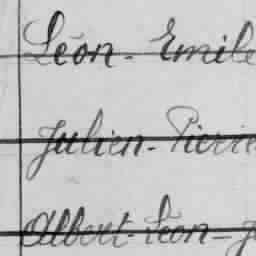 Léon - Emile
Julien - Pierre
Albert - Léon -